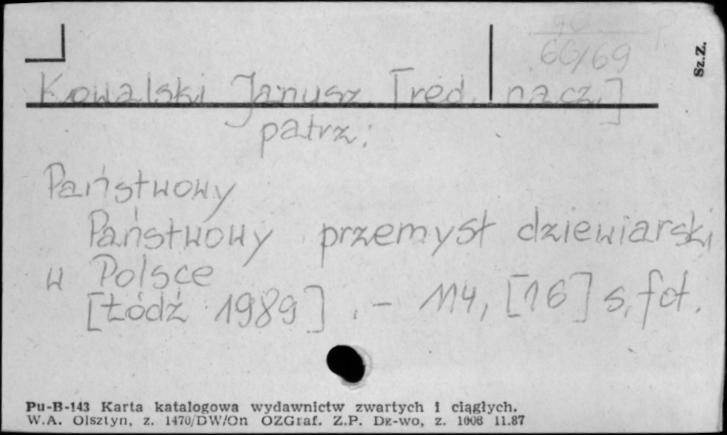 66/69
Sz.Z.
Kowalski Janusz [red. nacz.]
patrz:
Państwowy
Państwowy przemysł dziewiarski
w Polsce
[Łódź 1989]. - 114, [16] s, fot.
Pu-B-143 Karta katalogowa wydawnictw zwartych i ciągłych.
W.A. Olsztyn, z. 1470/DW/On OZGraf. Z.P. Dz-wo, z. 1006 11.87